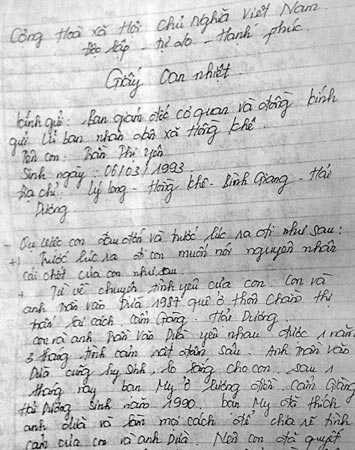 Cộng Hoà xã Hội chủ nghĩa Việt Nam
Độc lập - tự do - Hạnh phúc.
Giấy Oan nhiệt
kính gửi: ban giám đốc cơ quan và đồng kính
gửi uỷ ban nhân dân xã Hồng khê.
Tên con: Trần Thị Yên
Sinh ngày: 06/03/1993
Địa chỉ: Lý Long - Hồng khê - Bình Giang - Hải
Dương
trước lúc ra đi như sau:
+) Trước lúc ra đi con muốn nói nguyên nhân
cái chết của con như sau
+ Từ về chuyện tình yêu của con. Con và
anh Trần văn Duà 1987 quê ở thôn Chằm thị
trấn lai cách, Cẩm Giàng. Hải Dương.
con và anh Trần văn Duà yêu nhau được 1 năm
3 tháng tình cảm rất đậm sâu. Anh trần văn
Duà cũng hy sinh, lo lắng cho con, sau 1
tháng nay bạn My ở lương điền. Cẩm Giàng
Hải Dương sinh năm 1990. bạn My đã thích
anh duà và làm mọi cách để chia rẽ tình
cảm của con và anh Duà. Nên con đã quyết